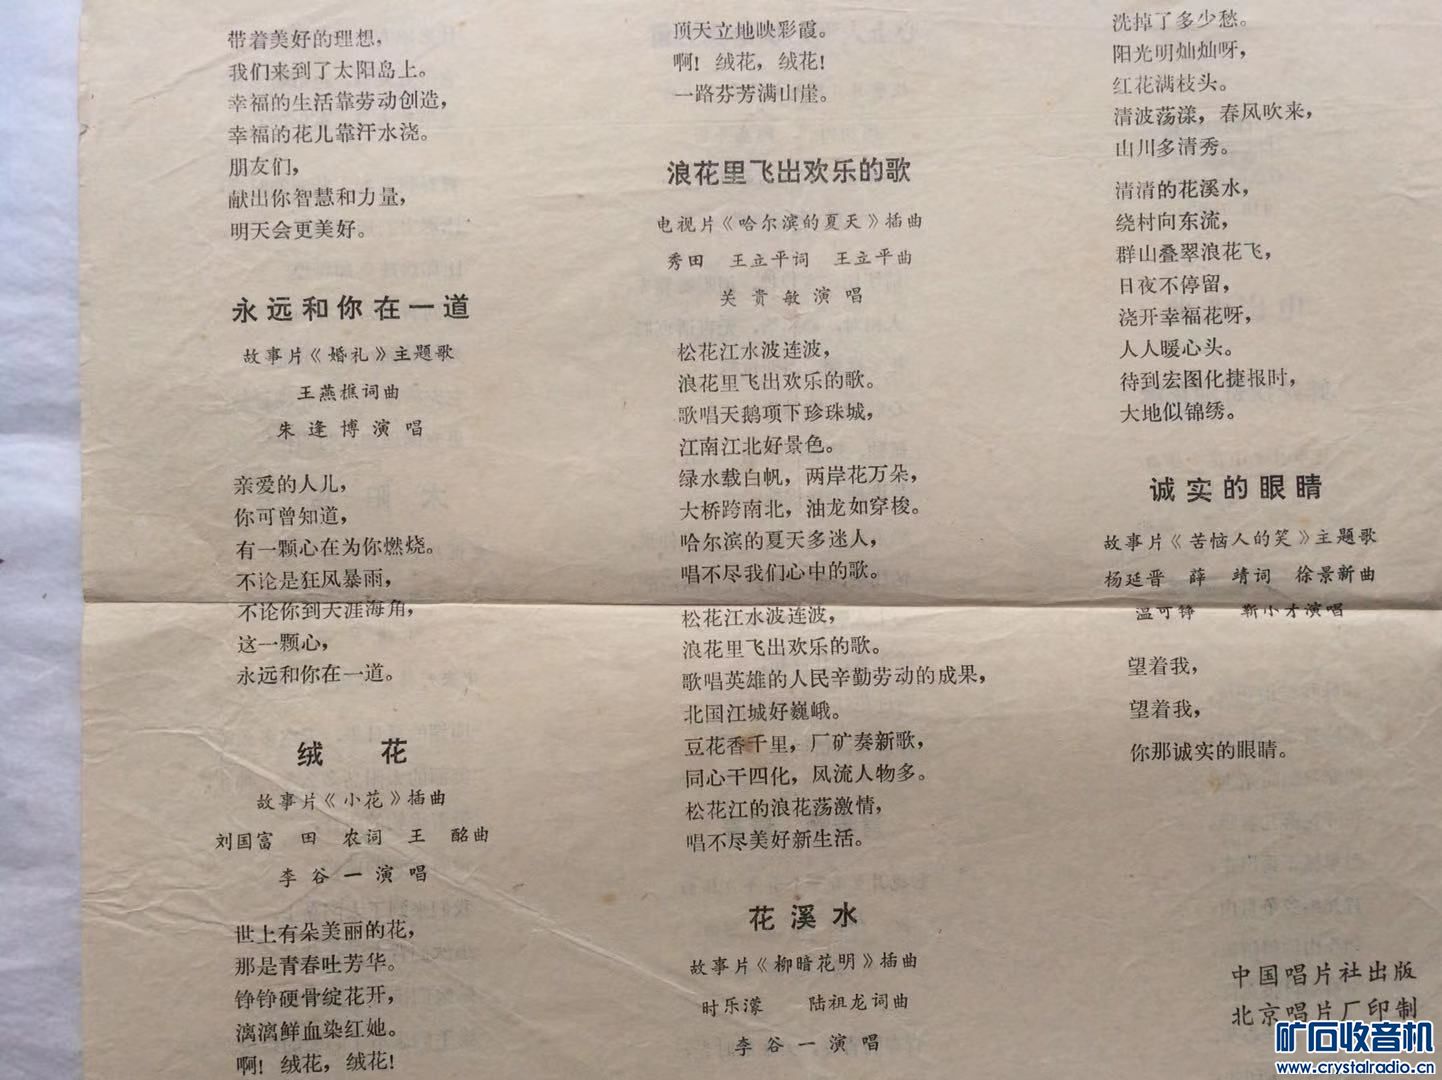 带着美好的理想，
我们来到了太阳岛上。
幸福的生活靠劳动创造，
幸福的花儿靠汗水浇。
朋友们，
献出你智慧和力量，
明天会更美好。
永远和你在一道
故事片《婚礼》主题歌
王燕樵词曲
朱逢博演唱
亲爱的人儿，
你可曾知道，
有一颗心在为你燃烧。
不论是狂风暴雨，
不论你到天涯海角，
这一颗心，
永远和你在一道。
绒 花
故事片《小花》插曲
刘国富 田 农词 王 酩曲
李谷一演唱
世上有朵美丽的花，
那是青春吐芳华。
铮铮硬骨绽花开，
漓漓鲜血染红她。
啊！绒花，绒花！
顶天立地映彩霞。
啊！绒花，绒花！
一路芬芳满山崖。
浪花里飞出欢乐的歌
电视片《哈尔滨的夏天》插曲
秀田 王立平词 王立平曲
关贵敏演唱
松花江水波连波，
浪花里飞出欢乐的歌。
歌唱天鹅项下珍珠城，
江南江北好景色。
绿水载白帆，两岸花万朵，
大桥跨南北，油龙如穿梭。
哈尔滨的夏天多迷人，
唱不尽我们心中的歌。
松花江水波连波，
浪花里飞出欢乐的歌。
歌唱英雄的人民辛勤劳动的成果，
北国江城好巍峨。
豆花香千里，厂矿奏新歌，
同心干四化，风流人物多。
松花江的浪花荡激情，
唱不尽美好新生活。
花溪水
故事片《柳暗花明》插曲
时乐濛 陆祖龙词曲
李谷一演唱
洗掉了多少愁。
阳光明灿灿呀，
红花满枝头。
清波荡漾，春风吹来，
山川多清秀。
清清的花溪水，
绕村向东流，
群山叠翠浪花飞，
日夜不停留，
浇开幸福花呀，
人人暖心头。
待到宏图化捷报时，
大地似锦绣。
诚实的眼睛
故事片《苦恼人的笑》主题歌
杨延晋 薛 靖词 徐景新曲
温可铮 靳小才演唱
望着我，
望着我，
你那诚实的眼睛。
中国唱片社出版
北京唱片厂印制
矿石收音机
www.crystalradio.cn